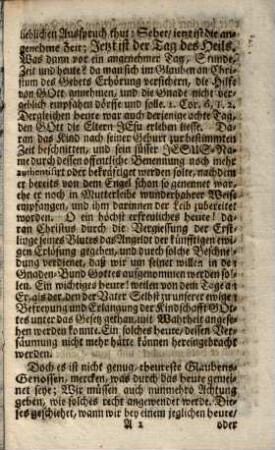 lieblichen Ausspruch thut: Sehet, jetzt ist die an-
genehme Zeit; Jetzt ist der Tag des Heils.
Was dann vor ein angenehmer Tag, Stunde,
Zeit und heute? da man sich im Glauben an Chri-
stum des Gebets Erhörung versichern, die Hilffe
von GOtt annehmen, und die Gnade nicht ver-
geblich empfahen dörffe und solle. 2. Cor. 6, 1. 2.
Dergleichen heute war auch derjenige achte Tag,
den GOtt die Eltern JEsu erleben liesse. Da-
ran das Kind nach seiner Geburt zur bestimmten
Zeit beschnitten, und sein süsser JESUS-Na-
me durch dessen offentliche Benennung noch mehr
authentisirt oder bekräfftiget werden solte, nachdem
er bereits von dem Engel schon so genennet war,
ehe er noch in Mutterleibe wunderbahrer Weise
empfangen, und ihm darinnen der Leib zubereitet
worden. O ein höchst erfreuliches heute! da-
ran Christus durch die Vergiessung der Erst-
linge seines Blutes das Angeldt der künfftigen ewi-
gen Erlösung gegeben, und durch solche Beschnei-
dung verdienet, daß wir um seinet willen in den
Gnaden-Bund Gottes aufgenommen werden sol-
len. Ein wichtiges heute! weilen von dem Tage an
Er, als der, den der Vater Selbst zu unserer ewigen
Befreyung und Erlangung der Kindschafft GOt-
tes unter das Gesetz gethan, mit Wahrheit angese-
hen werden konte. Ein solches heute, dessen Ver-
säumung nicht mehr hätte können hereingebracht
werden.
Doch es ist nicht genug, theureste Glaubens-
Genossen, mercken, was durch das heute gemei-
net seye; Wir müssen auch nunmehro Achtung
geben, wie solches recht angewendet werde. Die-
ses geschiehet, wann wir bey einem jeglichen heute,
A 2 oder